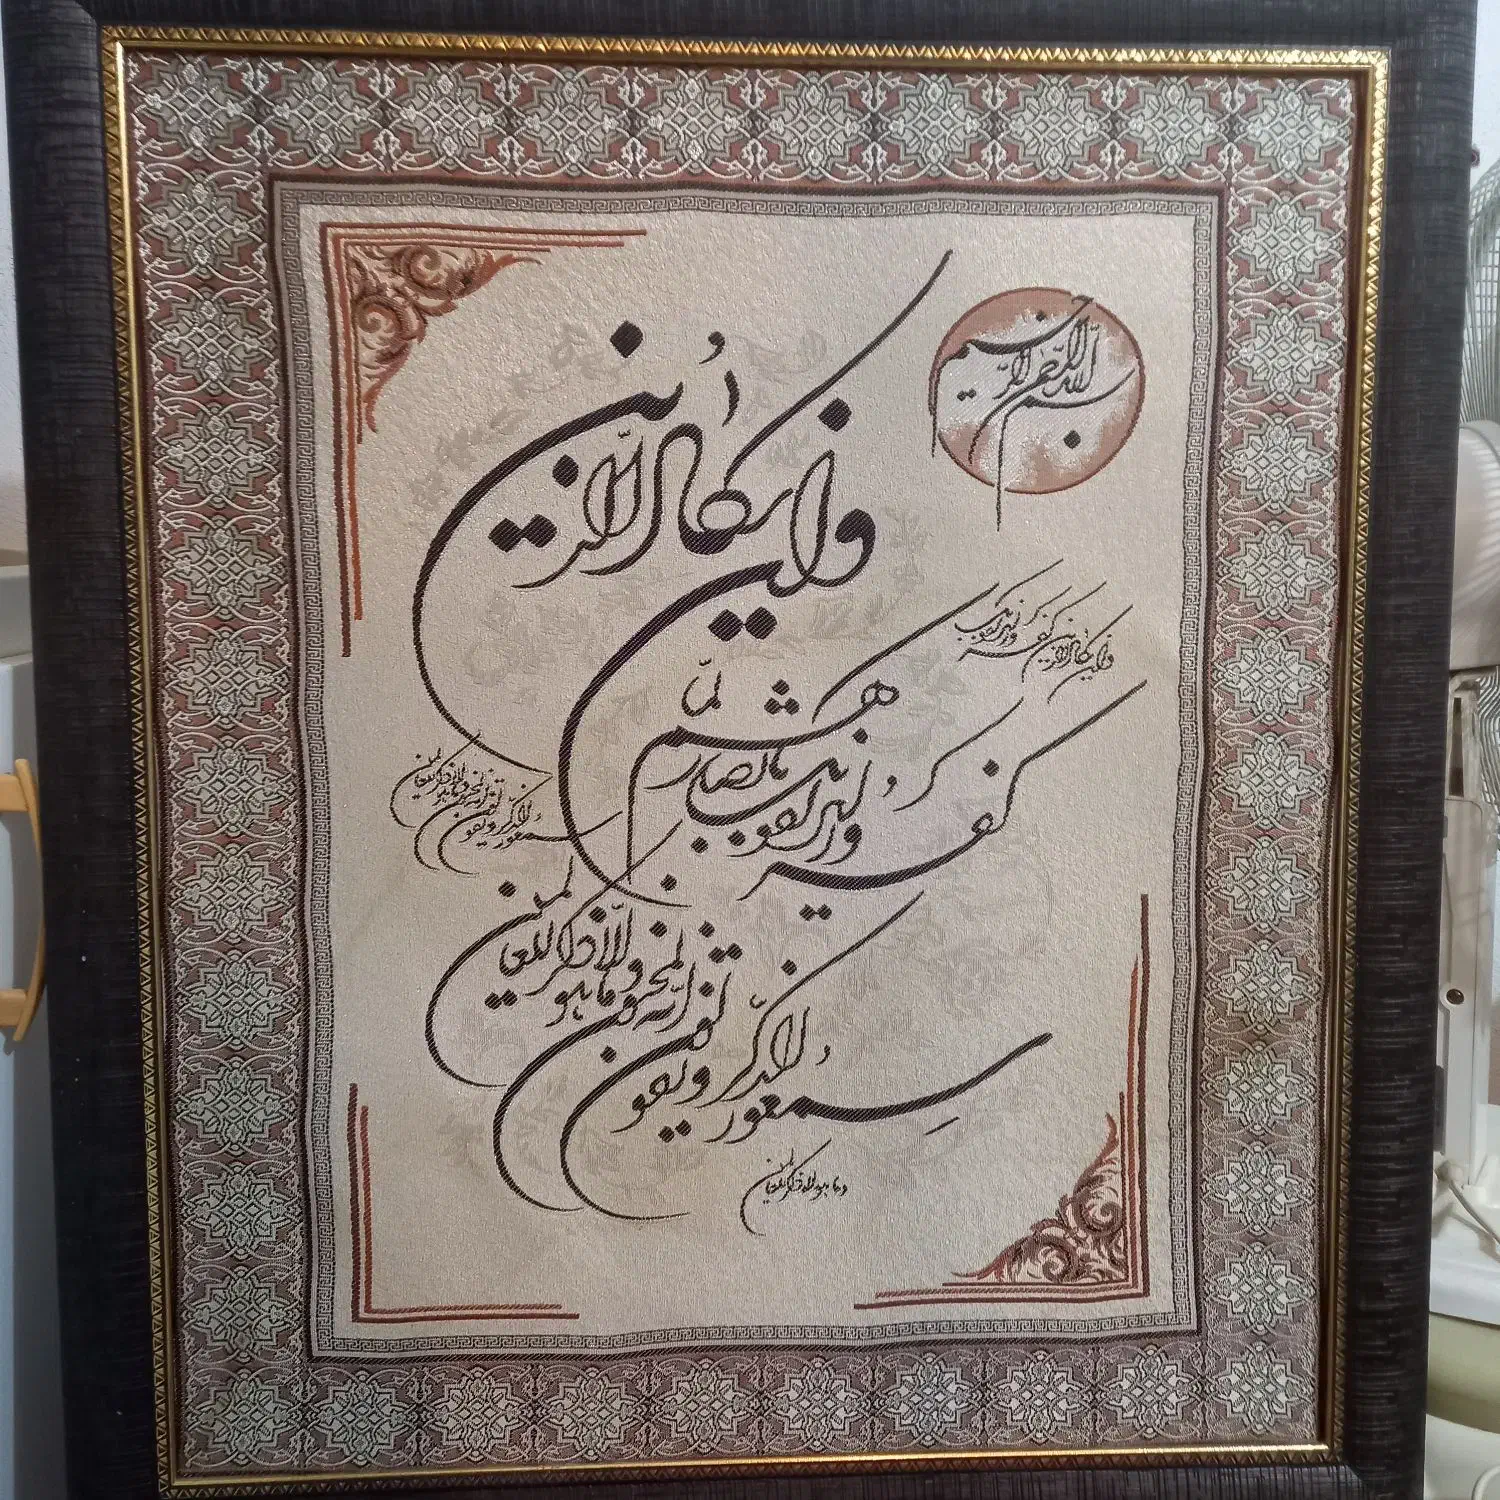 بسم الله الرحمن الرحیم
وان یکاد الذین
کفروا لیزلقونک بابصارهم لما
سمعوا الذکر و یقولون انه لمجنون
و ما هو الا ذکر للعالمین
وان یکاد الذین کفروا لیزلقونک
سمعوا الذکر و یقولون انه لمجنون و ما هو الا ذکر للعالمین
و ما هو الا ذکر للعالمین